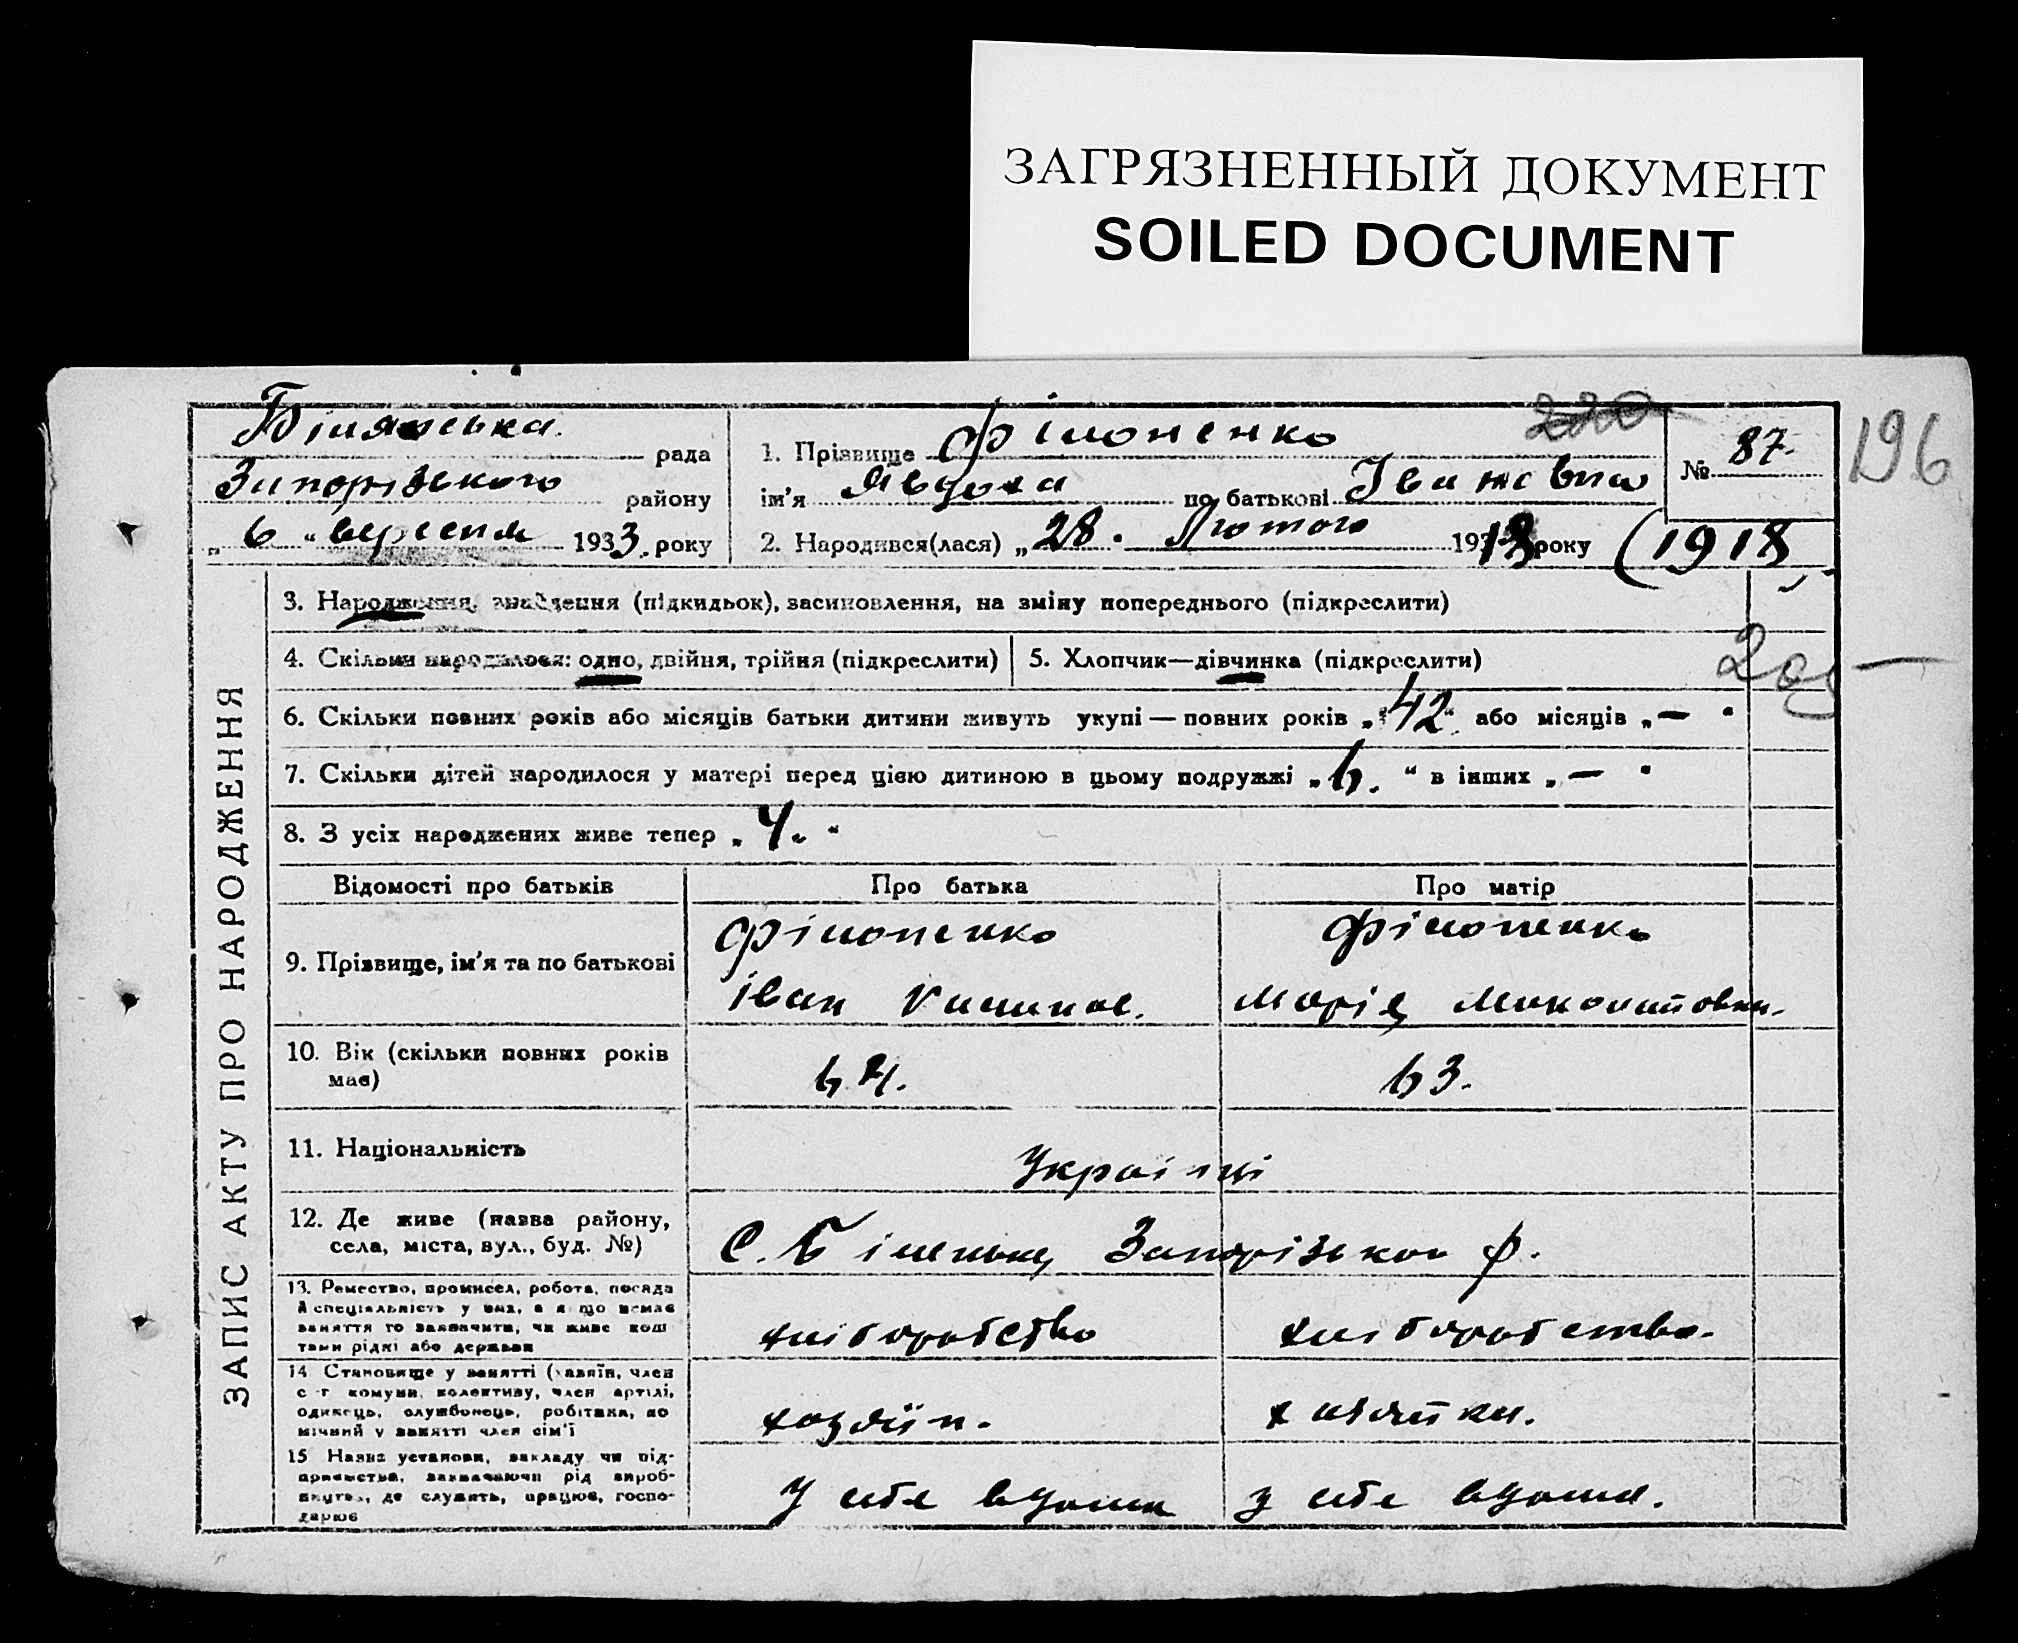 ЗАГРЯЗНЕННЫЙ ДОКУМЕНТ
SOILED DOCUMENT
рада
Запорізького району
„ 6 “ вересня 1933. року
1. Прізвище Філоненко
220
№ 87.
196
ім'я Явдоха по батькові Івановна
2. Народився(лася) „ 28. Лютого 1918 року (1918
ЗАПИС АКТУ ПРО НАРОДЖЕННЯ
3. Народження, знайдення (підкидьок), засиновлення, на зміну попереднього (підкреслити)
4. Скільки народилося: одно, двійня, трійня (підкреслити)
5. Хлопчик—дівчинка (підкреслити)
6. Скільки повних років або місяців батьки дитини живуть укупі — повних років „ 42 “. або місяців „ — “
7. Скільки дітей народилося у матері перед цією дитиною в цьому подружжі „ 6. “ в інших „ — “
8. З усіх народжених живе тепер „ 4. “
Відомості про батьків
Про батька
Про матір
9. Прізвище, ім'я та по батькові
Філоненко
Іван
Філоненко
Марія
10. Вік (скільки повних років
має)
63.
11. Національність
Українці
12. Де живе (назва району,
села, міста, вул., буд. №)
С. Біленьке, Запорізького р.
13. Ремество, промисел, робота, посада
й спеціяльність у них, а якщо немає
заняття то зазначити, чи живе кош
тами рідні або держави
хліборобство
хліборобство.
14 Становище у занятті (хазяїн, член
с-г комуни, колективу, член артілі,
одинець, службовець, робітник, по
мічний у занятті член сім'ї
хозяїн.
хазяйка.
15 Назва установи, закладу чи під-
приємства, зазначаючи рід вироб-
ництва, де служить, працює, госпо-
дарює
У себе вдома
У себе вдома.